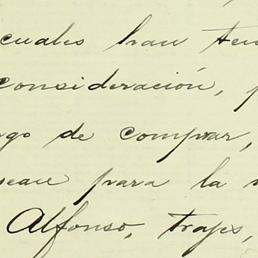 cuales han ten
consideración, p
go de comprar,
sean para la
Alfonso, trajes,